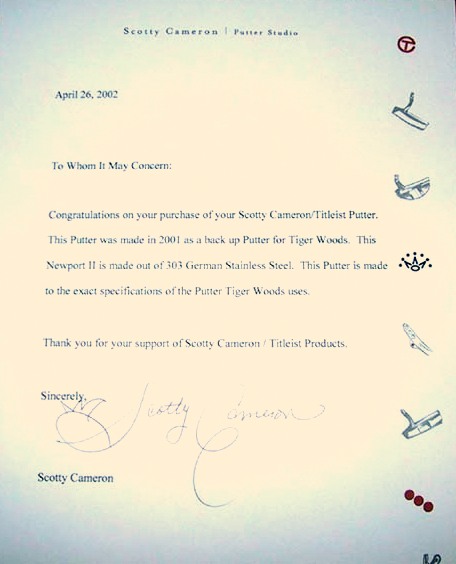 Scotty Cameron | Putter Studio
April 26, 2002
To Whom It May Concern:
Congratulations on your purchase of your Scotty Cameron/Titleist Putter.
This Putter was made in 2001 as a back up Putter for Tiger Woods. This
Newport II is made out of 303 German Stainless Steel. This Putter is made
to the exact specifications of the Putter Tiger Woods uses.
Thank you for your support of Scotty Cameron / Titleist Products.
Sincerely,
Scotty Cameron
Scotty Cameron